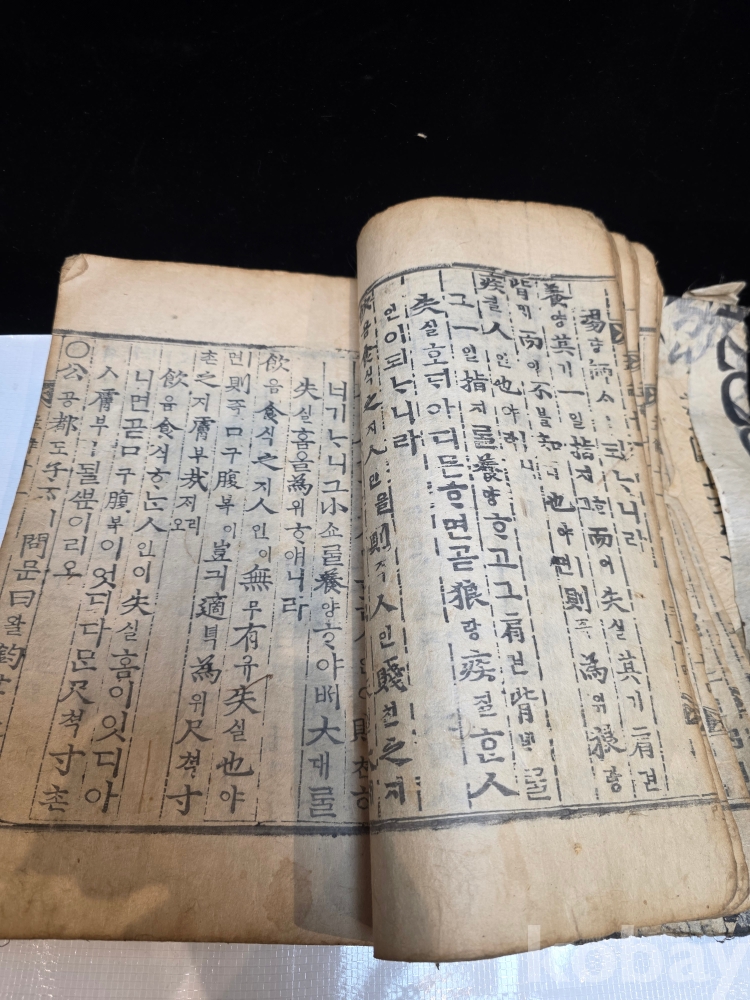 場댱師ᄉㅣ되ᄂᆞ니라
養양其기一일指지ᄒᆞ고而이失실其기肩견
背ᄇᆡ而이不블知디也야ㅣ면則즉爲위狼랑
疾질人인也야ㅣ니라
그一일指지ᄅᆞᆯ養양ᄒᆞ고그肩견背ᄇᆡᄅᆞᆯ
失실호ᄃᆡ아디몯ᄒᆞ면곧狼랑疾질ᄒᆞᆫ人
인이되ᄂᆞ니라
飮음食식之지人인을則즉人인賤쳔之지
너기ᄂᆞ니그小쇼ᄅᆞᆯ養양ᄒᆞ야ᄡᅥ大대ᄅᆞᆯ
失실홈을爲위ᄒᆞ얘니라
飮음食식之지人인이無무有유失실也야
ㅣ면則즉口구腹복이豈긔適텩爲위尺쳑寸
촌之지膚부哉ᄌᆡ리오
飮음食식ᄒᆞᄂᆞᆫ人인이失실홈이잇디아
니면곧口구腹복이엇디다ᄆᆞᆫ尺쳑寸촌
ㅅ膚부ㅣ될ᄲᅮᆫ이리오
○公공都도子ᄌᆞㅣ問문曰왈鈞
kobay